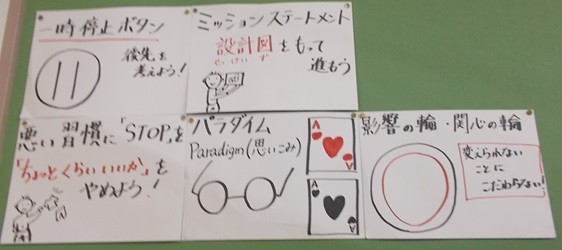 一時停止ボタン
優先を
考えよう!
ミッションステートメント
設計図をもって
せっけいず
進もう
悪い習慣に「STOP」を
「ちょっとくらいいいか」を
やめよう!
パラダイム
Paradigm(思いこみ)
A
A
A
A
影響の輪・関心の輪
変えられない
ことに
こだわらない!